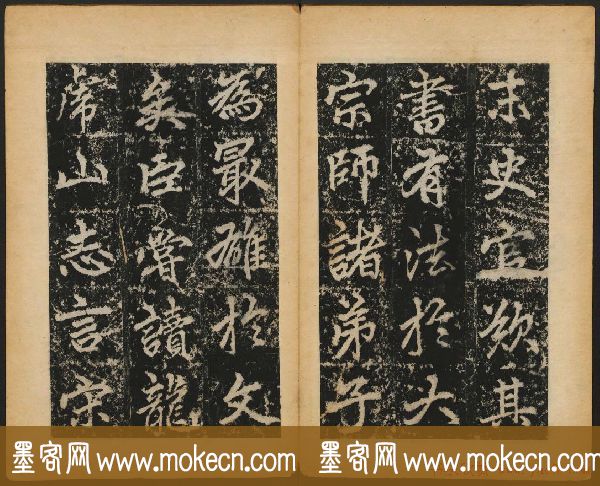 末史官欲其
書有法於大
宗師諸弟子
為最確於文
矣臣嘗讀龍
虎山志言宋
墨客网 www.mokecn.com
墨客网 www.mokecn.com